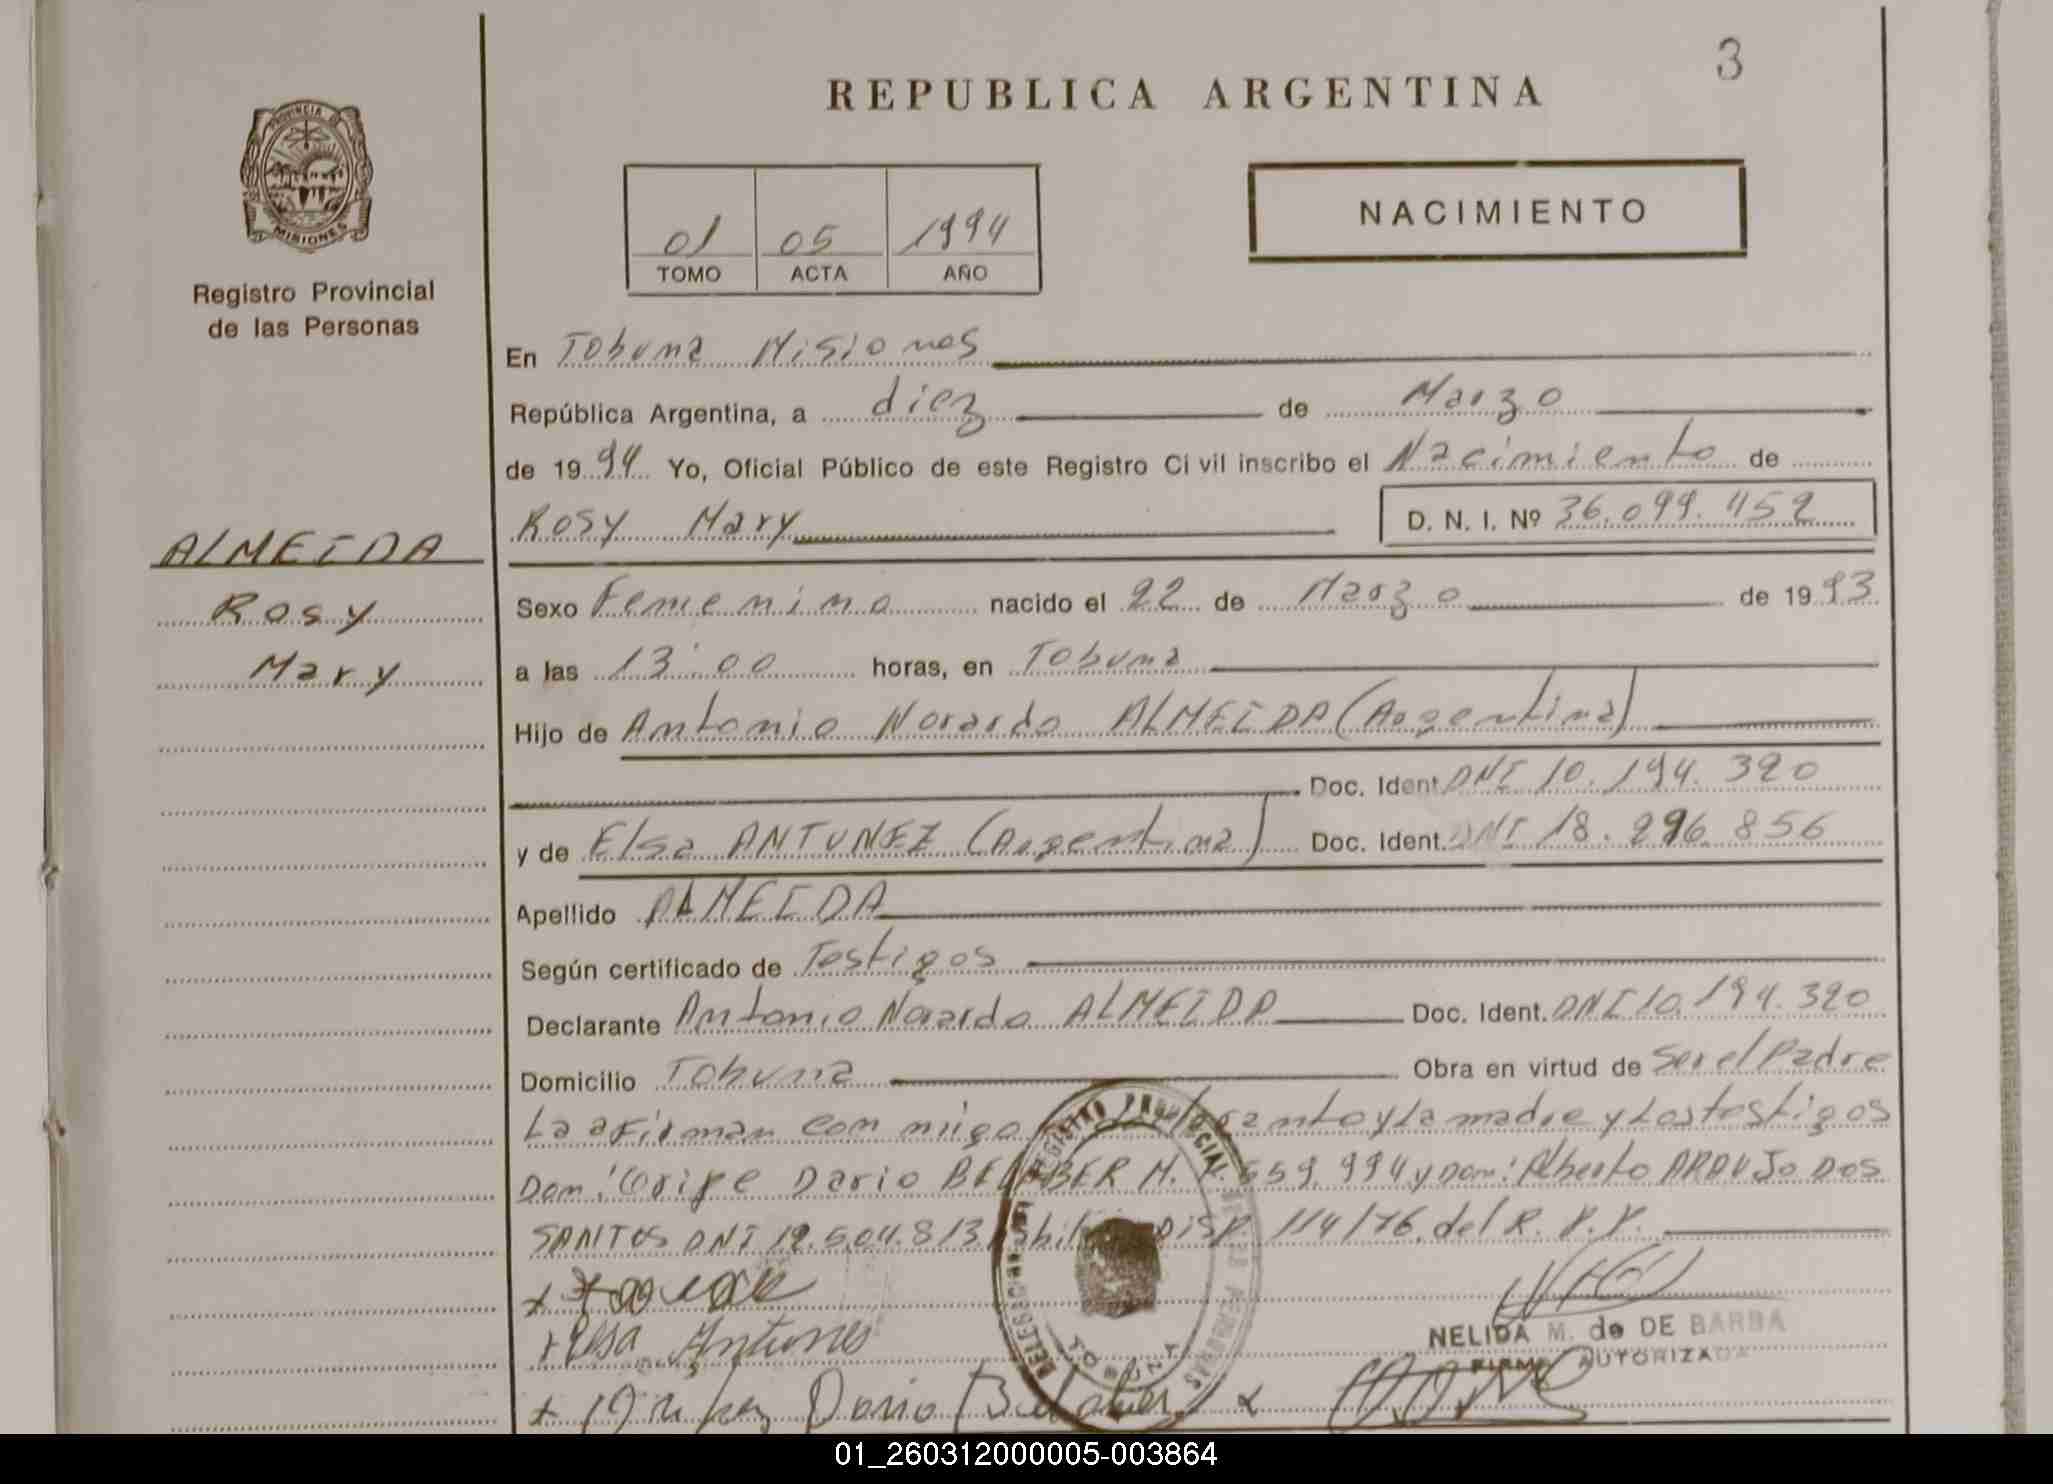 3
REPUBLICA ARGENTINA
PROVINCIA DE
MISIONES
Registro Provincial
de las Personas
01 05 1994
TOMO ACTA AÑO
NACIMIENTO
En Tobuna Misiones
República Argentina, a diez de Marzo
de 1994 Yo, Oficial Público de este Registro Civil inscribo el Nacimiento de
Rosy Mary D. N. I. Nº 36.099.452
ALMEIDA
Rosy
Mary
Sexo Femenino nacido el 22 de Marzo de 1993
a las 13:00 horas, en Tobuna
Hijo de Antonio Norardo ALMEIDA (Argentina)
Doc. Ident. DNI 10.194.320
y de Elsa ANTUNEZ (Argentina) Doc. Ident. DNI 18.296.856
Apellido ALMEIDA
Según certificado de Testigos
Declarante Antonio Norardo ALMEIDA Doc. Ident. DNI 10.194.320
Domicilio Tobuna Obra en virtud de Ser el Padre
La a Firman con migo y La madre y Los testigos
Dom: Dario M. 559.994 y Dom: Alberto ARAUJO DOS
SANTOS DNI 12.504.813 Disp. 114/76 del R. P. P.
Elsa Antunes
NELIDA M. de DE BARBA
FIRMA AUTORIZADA
Dario
REGISTRO PROVINCIAL DE LAS PERSONAS
01_260312000005-003864